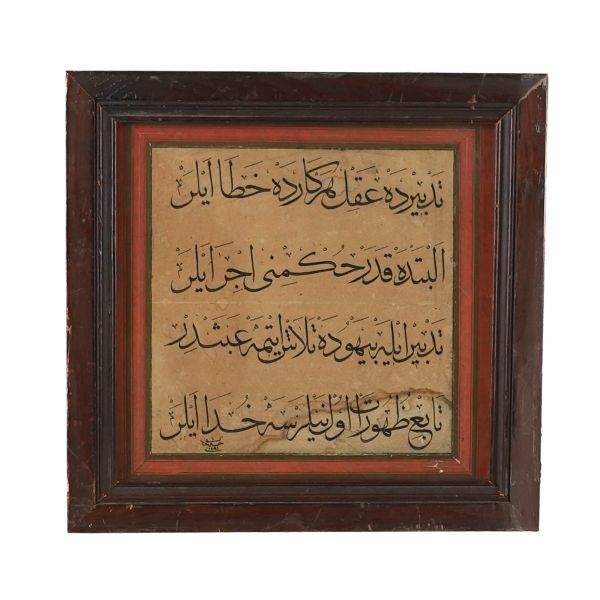 تدبیرده عقل هر کارده خطا ایلر
البتده قدر حکمنی اجرا ایلر
تدبیر ایله بیهوده تلاش ایتمه عبثدر
تابع ظهورات اول نیلرسه خدا ایلر